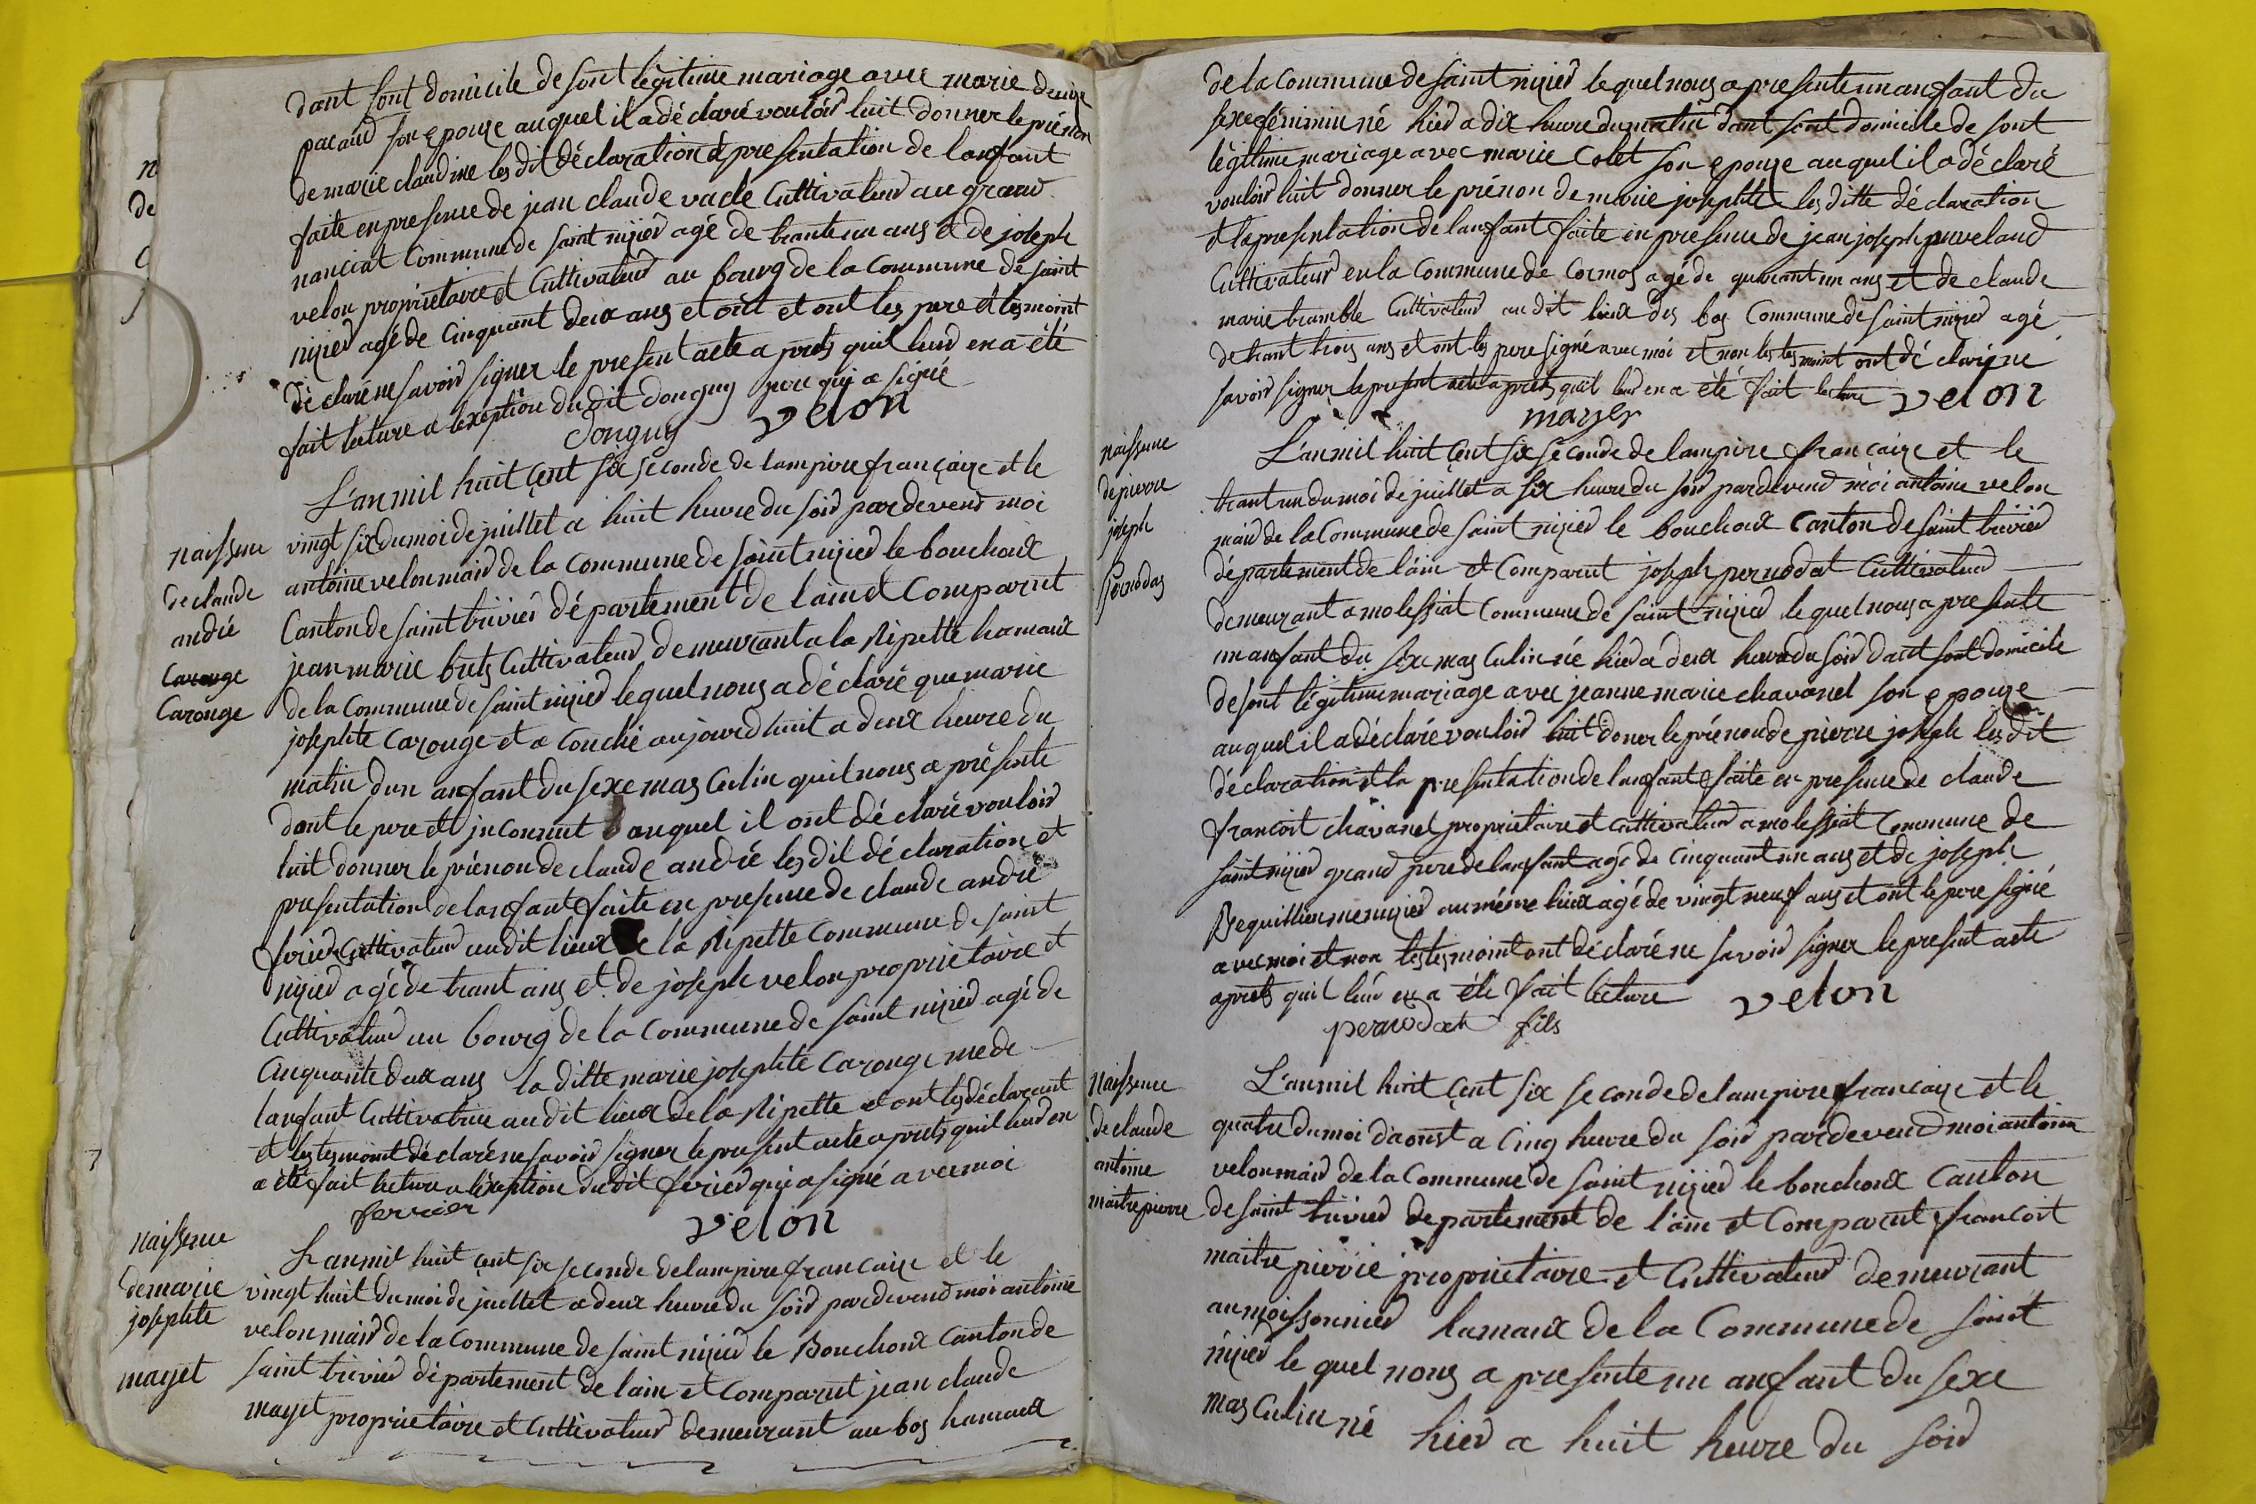 dant sont domicile de sont légitime mariage avec marie denize
pacaud son epouze auquel il a déclaré vouloir luit donner le prénon
de marie claudine les dit déclaration et presentation de lanfant
faite en presence de jean claude vacle Cultivateur au grand
nanciat Commune de saint nizier agé de trante un ans et de joseph
velon propriétaire et Cultivateur au bourg de la Commune de saint
nizier agé de Cinquant deux ans et ont et ont les pere et tesmoint
déclaré ne savoir signer le present acte a prets quil leur en a été
fait lecture a lexeption du dit donguy pere qui a signé
Donguy velon
n
de
naissence
de claude
andré
Carouge
Carouge
L'an mil huit çent six seconde de lampire françaize et le
vingt six du moi de juillet a huit heure du soir pardevent moi
antoine velon mair de la Commune de saint nizier le bouchoux
Canton de saint trivier département de lain et Comparut
jean marie buts Cultivateur demeurant a la Ripette hamaux
de la Commune de saint nizier le quel nous a déclaré que marie
josephte Carouge et a Couché aujourdhuit a deux heure du
matin dun anfant du sexe masculin quil nous a présente
dont le pere et jnconnut auquel il ont déclaré vouloir
luit donner le prénon de claude andré les dit déclaration et
presentation de lanfant faite en presence de claude andré
ferier Cultivateur audit lieux de la Ripette Commune de saint
nizier agé de trant ans et de joseph velon proprietaire et
Cultivateur au bourg de la Commune de saint nizier agé de
Cinquante deux ans la ditte marie josephte Carouge mere de
lanfant Cultivatrice au dit lieux de la Ripette et ont les déclarant
et les tesmoint déclaré ne savoir signer le present acte a prets quil leur en
a été fait lecture a lexeption du dit ferier qui a signé avec moi
ferrier velon
naissence
de marie
josephte
mayet
L'an mil huit çent six seconde de lampire francaize et le
vingt huit du moi de juillet a deux heure du soir pardevend moi antoine
velon mair de la Commune de saint nizier le Bouchoux Canton de
saint trivier département de lain et Comparut jean claude
mayet proprietaire et Cultivateur demeurant au bos hamaux
de la Commune de saint nizier le quel nous a presente un anfant du
sexe féminin né hier a dix heure du matin dant sont domicile de sont
légitime mariage avec marie Colet son epouze auquel il a déclaré
vouloir luit donner le prénon de marie josephte les ditte déclaration
et la presentation de lanfant faite en presence de jean joseph puveland
Cultivateur en la Commune de Cormos agé de quarant un ans et de claude
marie tramble Cultivateur au dit lieux des bos Commune de saint nizier agé
de trant trois ans et ont les pere signé avec moi et non les tesmoint ont déclaré ne
savoir signer le present acte a prets quil leur en a été fait lecture velon
mayer
naissence
de pierre
joseph
Pernodas
L'an mil huit çent six seconde de lampire francaize et le
trant un du moi de juillet a six heure du soir pardevend moi antoine velon
mair de la Commune de saint nizier le bouchoux Canton de saint trivier
département de l'ain et Comparut joseph pernodat Cultivateur
demeurant a molessiat Commune de saint nizier le quel nous a presente
un anfant du sexe masculin né hier a deux heure du soir dant sont domicile
de sont légitime mariage avec jeanne marie chavanel son epouze
auquel il a déclaré vouloir luit doner le prénon de pierre joseph les dit
déclaration et la presentation de lanfant faite en presence de claude
francoit chavanel proprietaire et Cultivateur a molessiat Commune de
saint nizier grand pere de lanfant agé de Cinquant un ans et de joseph
Bequillien menuzier au même lieux agé de vingt neuf ans et ont le pere signé
avec moi et non les tesmoint ont déclaré ne savoir signer le present acte
a prets quil leur en a été fait lecture velon
pernodat fils
naissence
de claude
antoine
maitrepierre
L'an mil huit çent six seconde de lampire francaize et le
quatre du moi daoust a Cinq heure du soir pardevend moi antoine
velon mair de la Commune de saint nizier le bouchoux Canton
de saint trivier departement de l'ain et Comparut francoit
maitre pierre proprietaire et Cultivateur demeurant
au moissonnier hamaux de la Commune de saint
nizier le quel nous a presente un anfant du sexe
masculin né hier a huit heure du soir